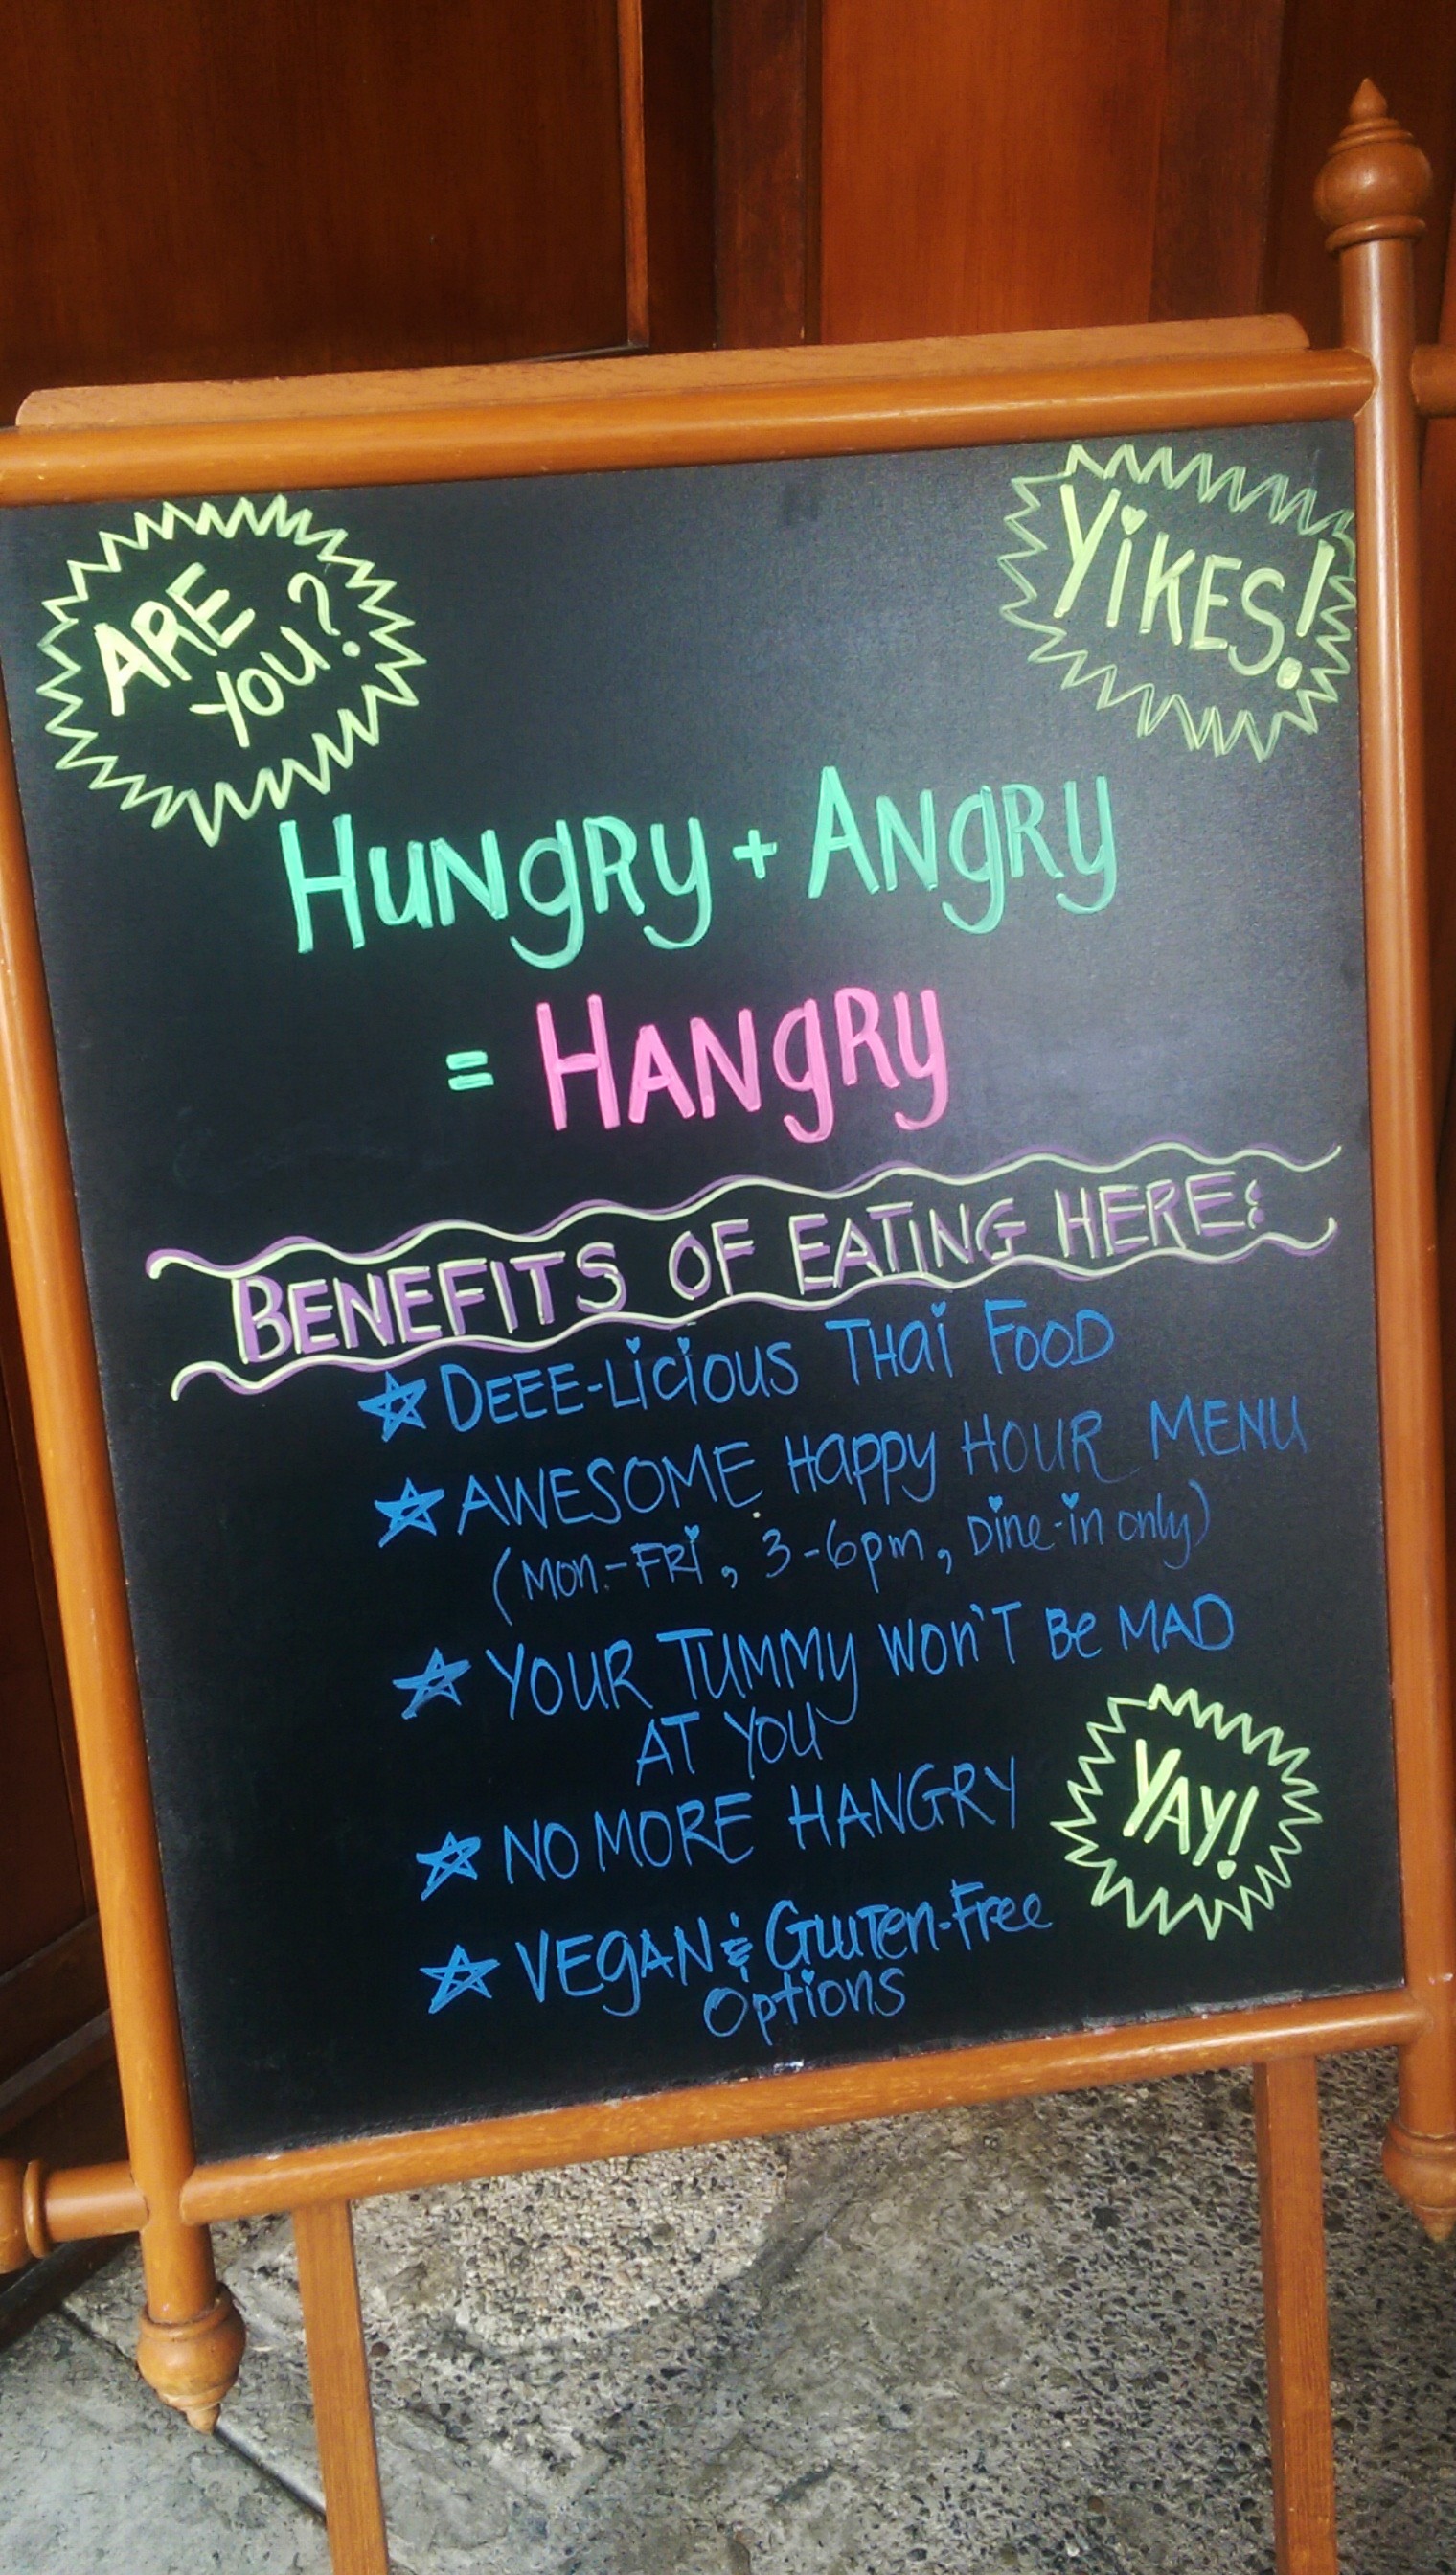 ARE
YOU?
YiKES!
HUNgRy + ANgRy
= HANgRy
BENEFITS OF EATING HERE:
☆ DEEE-Licious THai FOOD
☆ AWESOME Happy HOUR MENU
(Mon.-FRi, 3-6pm, Dine-in only)
☆ YOUR TUMMy WON'T Be MAD
AT YOU
☆ NO MORE HANGRY
YAY!
☆ VEgAN & GluTen-Free
Options